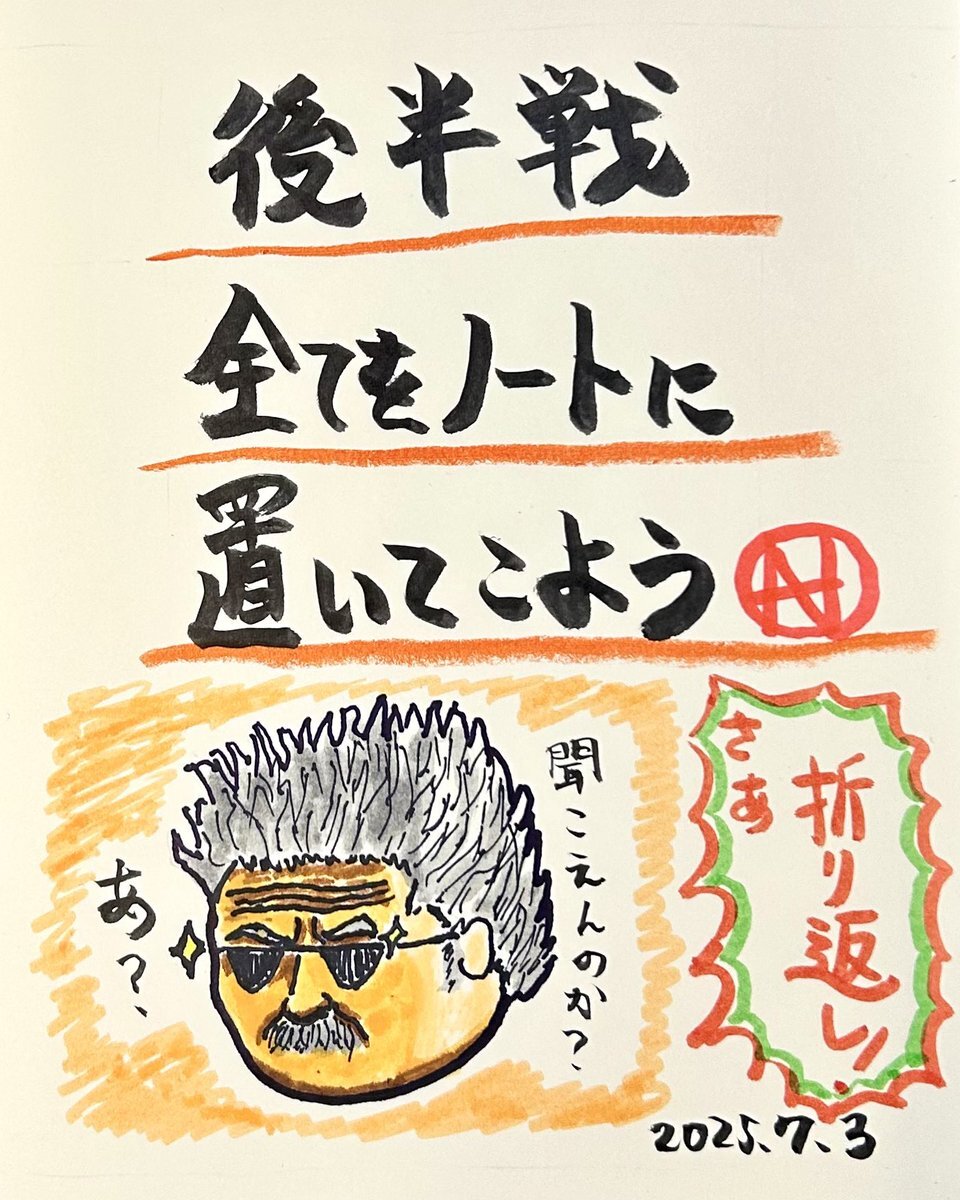 後半戦
全てをノートに
置いてこよう
N
聞こえんのか?
あ?、
さぁ
折り返し!
2025.7.3